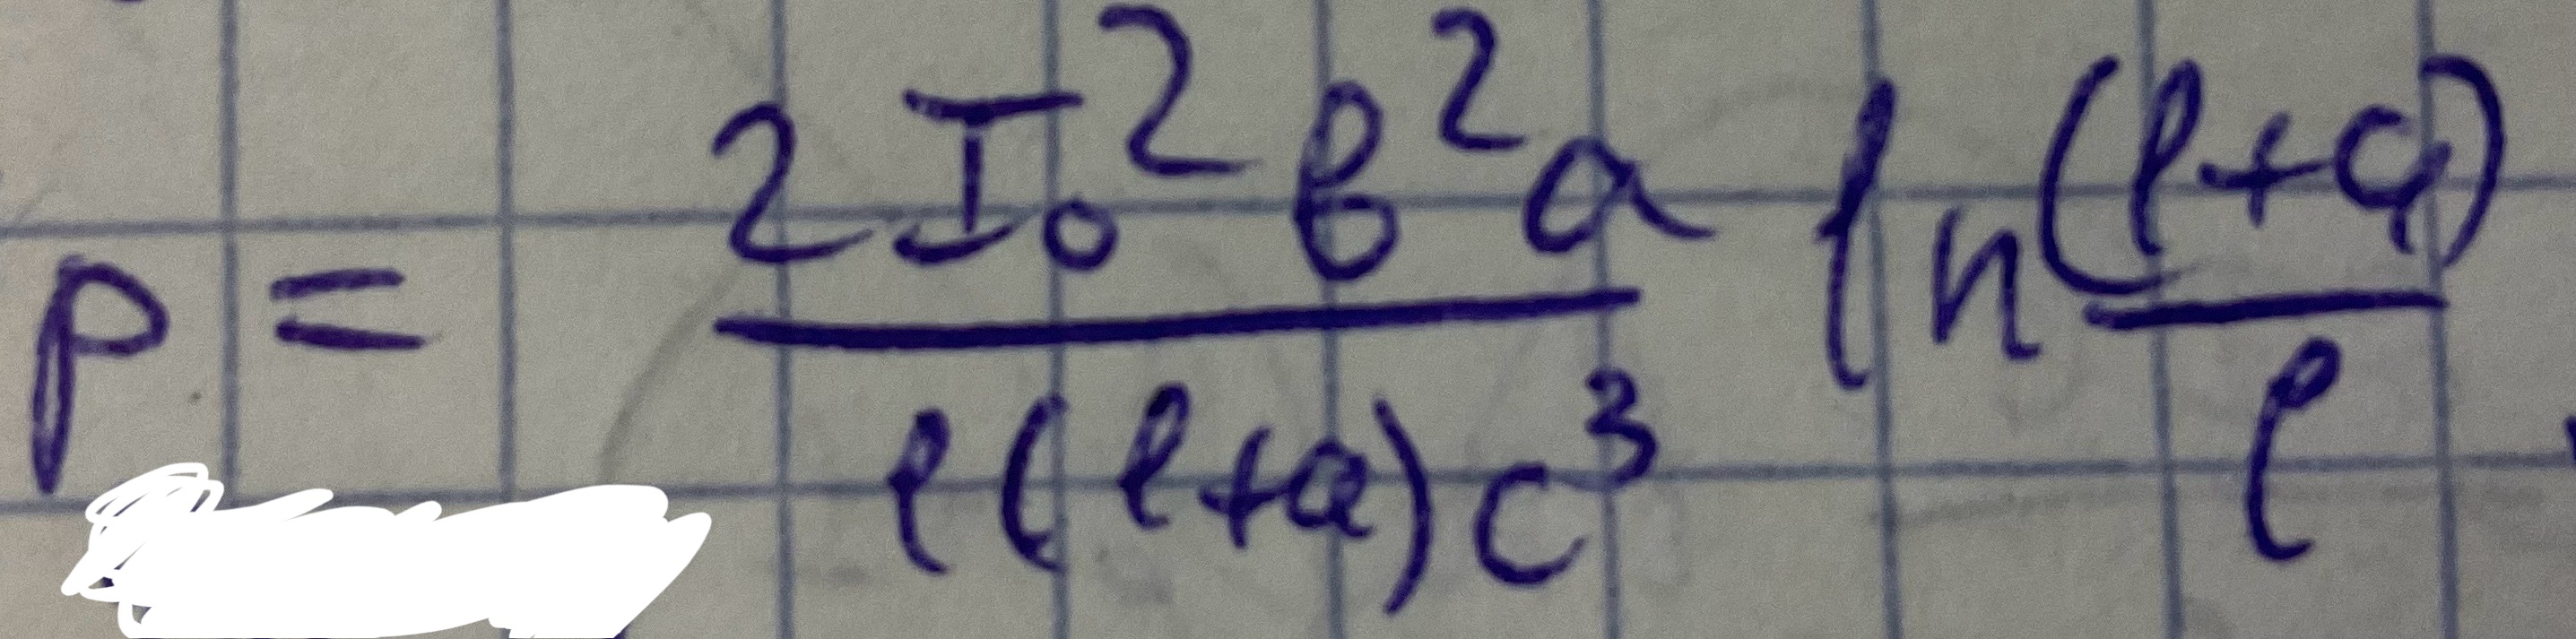 p = \frac{2 I_0^2 b^2 a}{l(l+a)c^3} ln \frac{(l+a)}{l}